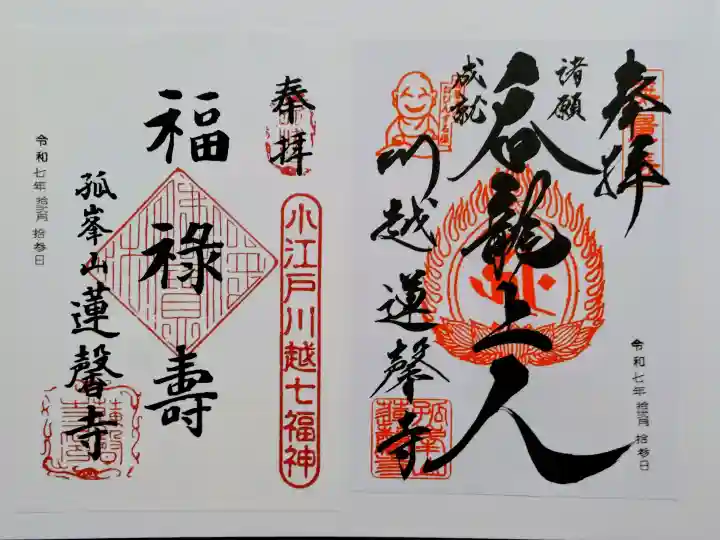 奉拝
諸願
成就
呑龍上人
川越蓮馨寺
おびんずる様
令和七年 拾弐月 拾参日
奉拝
小江戸川越七福神
福禄壽
孤峯山蓮馨寺
令和七年 拾弐月 拾参日